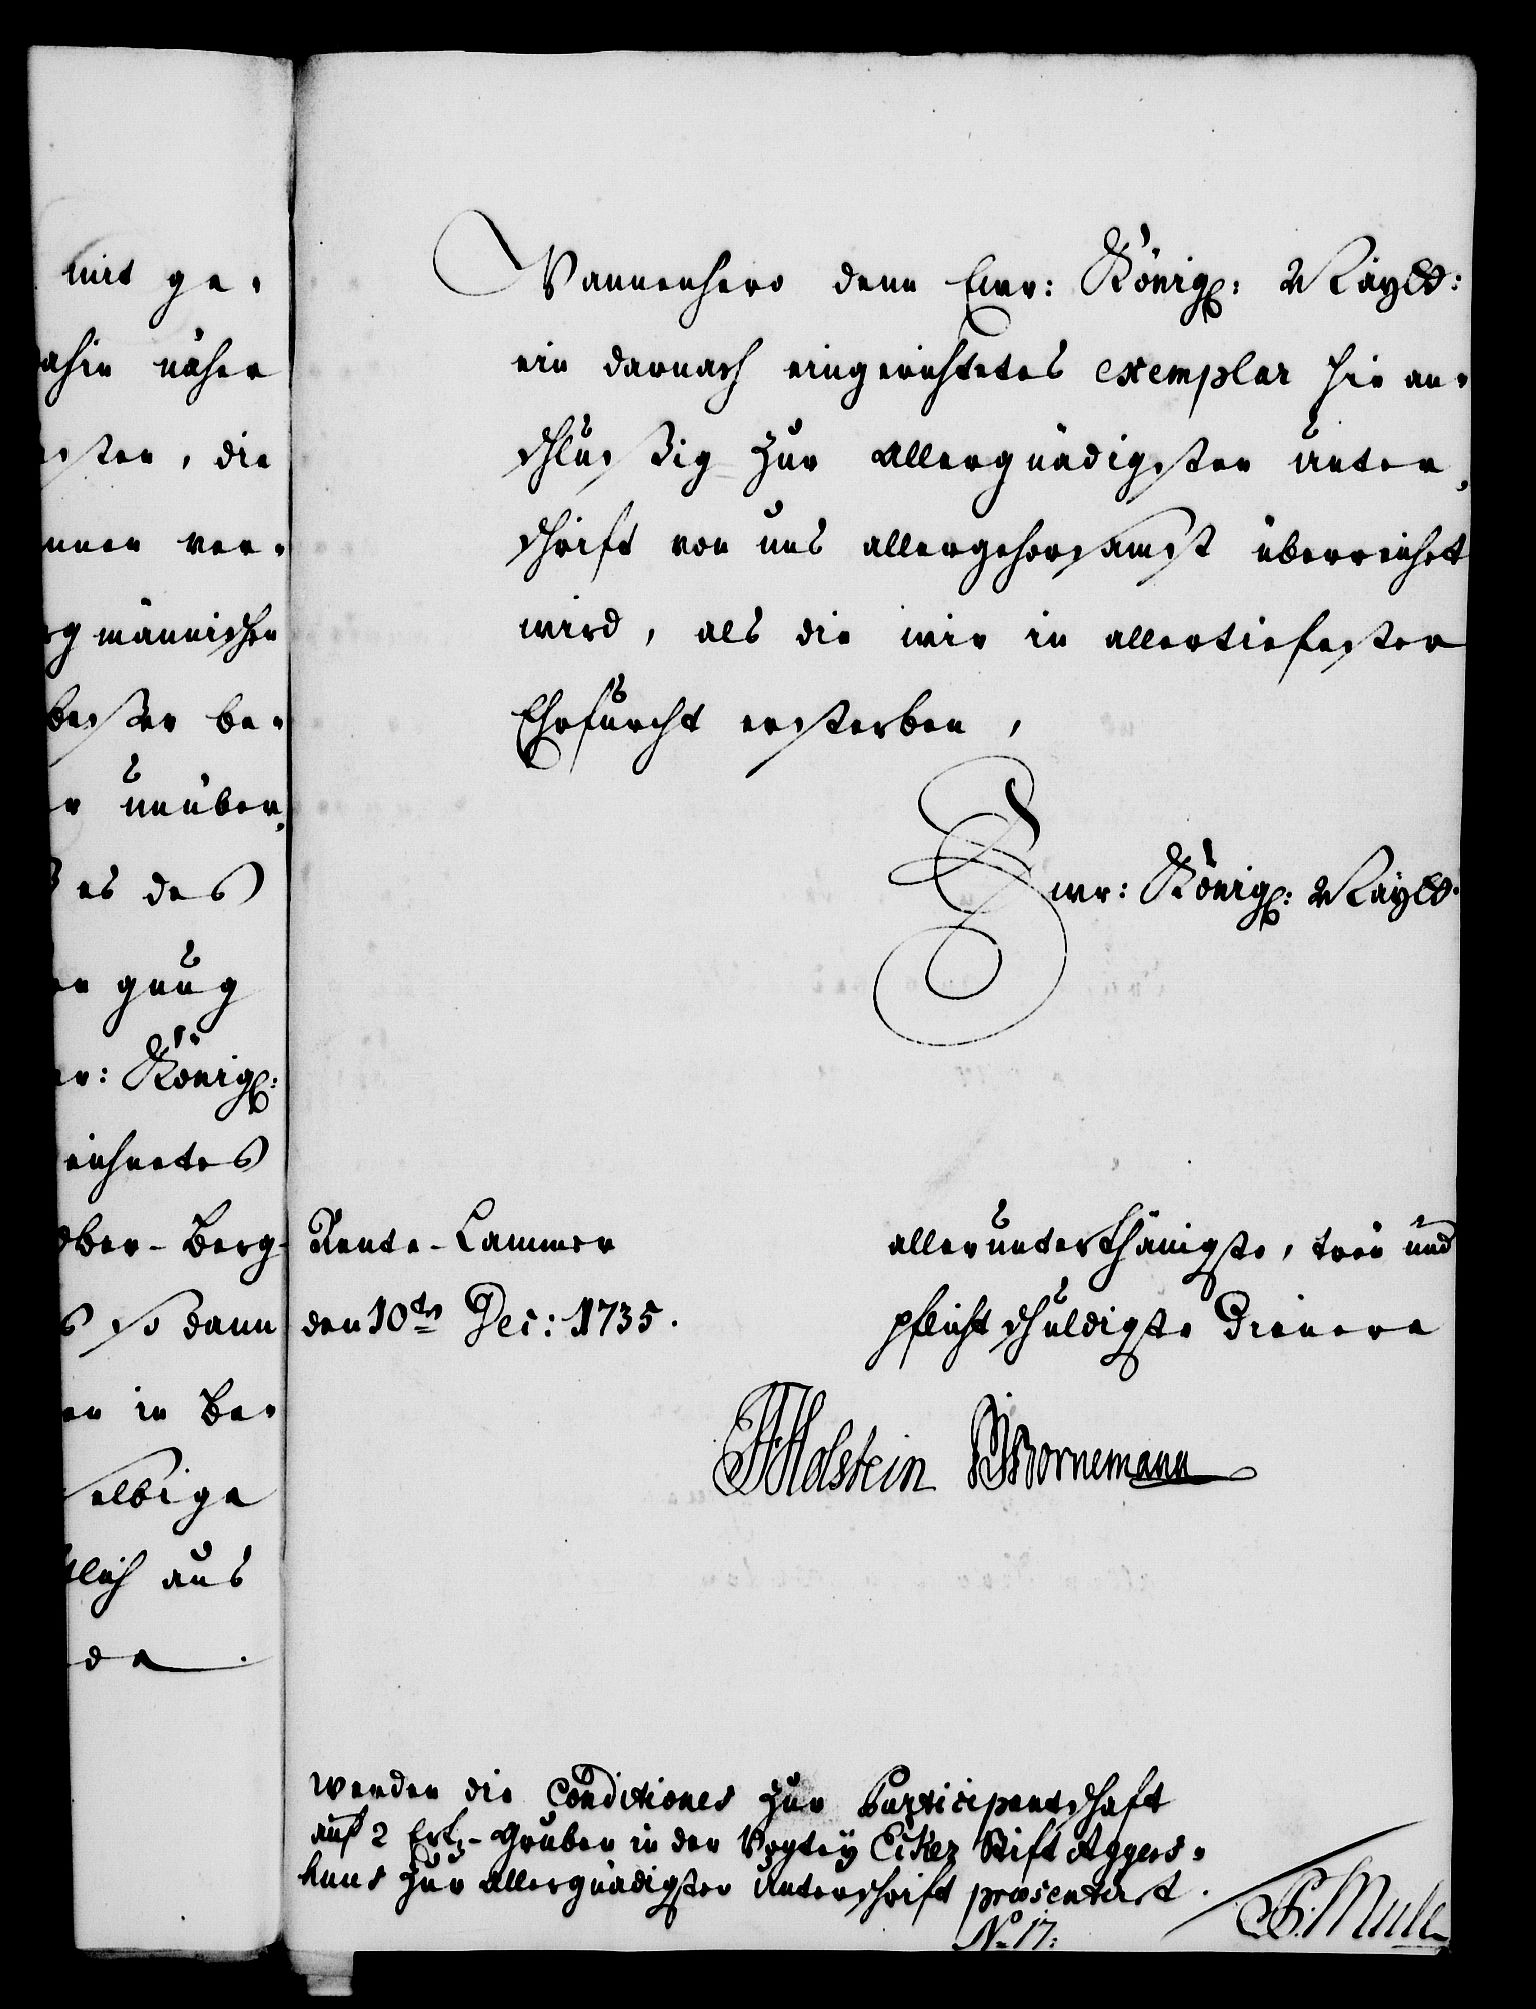 mit ge-
ahin näher
esten, die
nnen ver-
rg männischen
besten be-
er unüber,
es des
en gnug
er: Königl:
eichnetes
ober-Berg-
s so dann
en in Be-
selbige
tlich aus
de.
Wannenhero denn Ewr: Königl: Mayst:
ein darnach eingerichtetes exemplar hie an-
schlussig zur allergnädigsten unter,
schrifft von uns allergehorsamst überreichet
wird, als die wir in allertiefester
Ehrfurcht ersterben,
Ewr: Königl: Mayst.
Rente-Cammer
den 10ten Dec: 1735.
allerunterthänigste, treü und
pflichtschuldigste Dienere
Holstein Bornemann
werden die Conditiones zur Participantschaft
auf 2 Ertz-Gruben in der Vogtey Eiker Stift Aggers-
huus zur allergnädigsten Unterschrift præsentirt.
No 17.